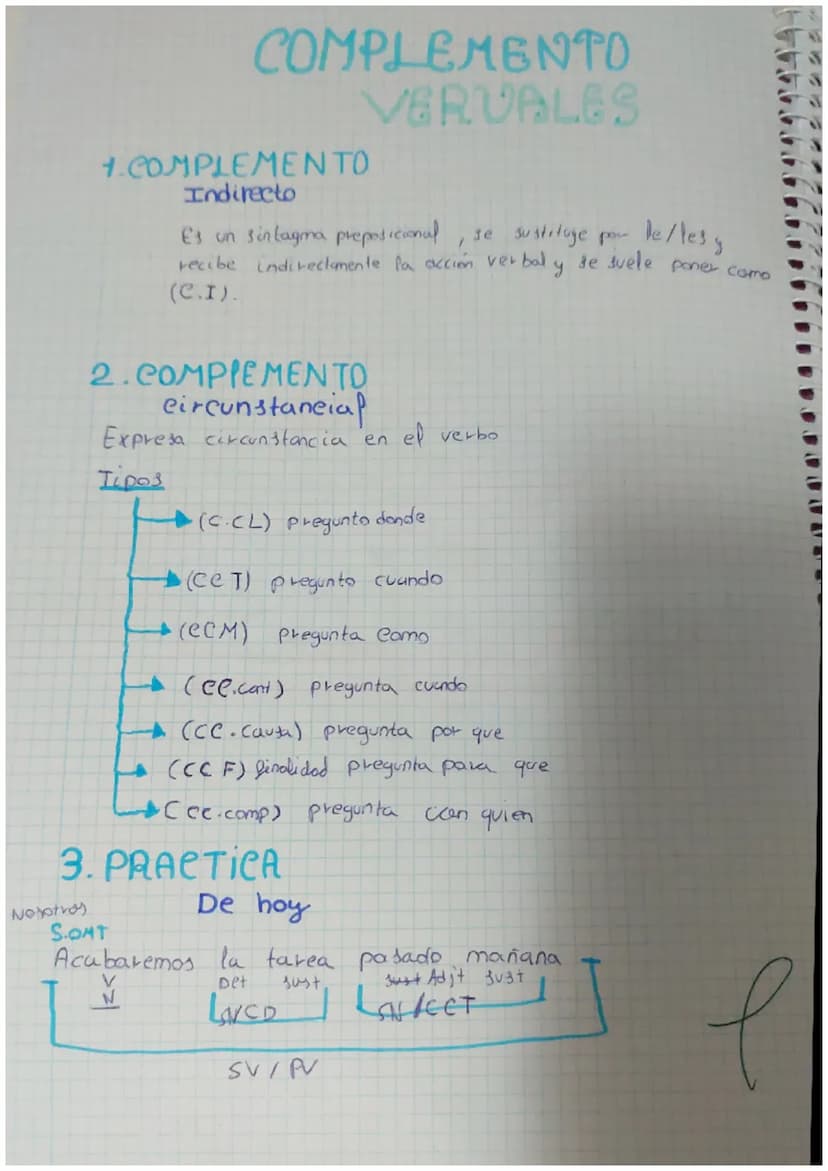 COMPLEMENTO
VERVALES
1. COMPLEMENTO
Indirecto
Es un sintagma preposicional, se sustituye por le/les y
recibe indirectamente la acción verbal y se suele poner como
(C.I).
2. COMPLEMENTO
circunstancial
Expresa circunstancia en el verbo
Tipos
(C.CL) pregunto donde
(CCT) pregunto cuando
(CCM) pregunta como
(CC.cant) pregunta cuando
(CC.causa) pregunta por que
(CC F) finalidad pregunta para que
(CC.comp) pregunta ccon quien
3. PRACTICA
De hoy
Nosotros
S.OMT
Acabaremos la tarea pasado mañana
V Det sust, sust Adjt sust
N SN/CD SN/CCT
SV / PV